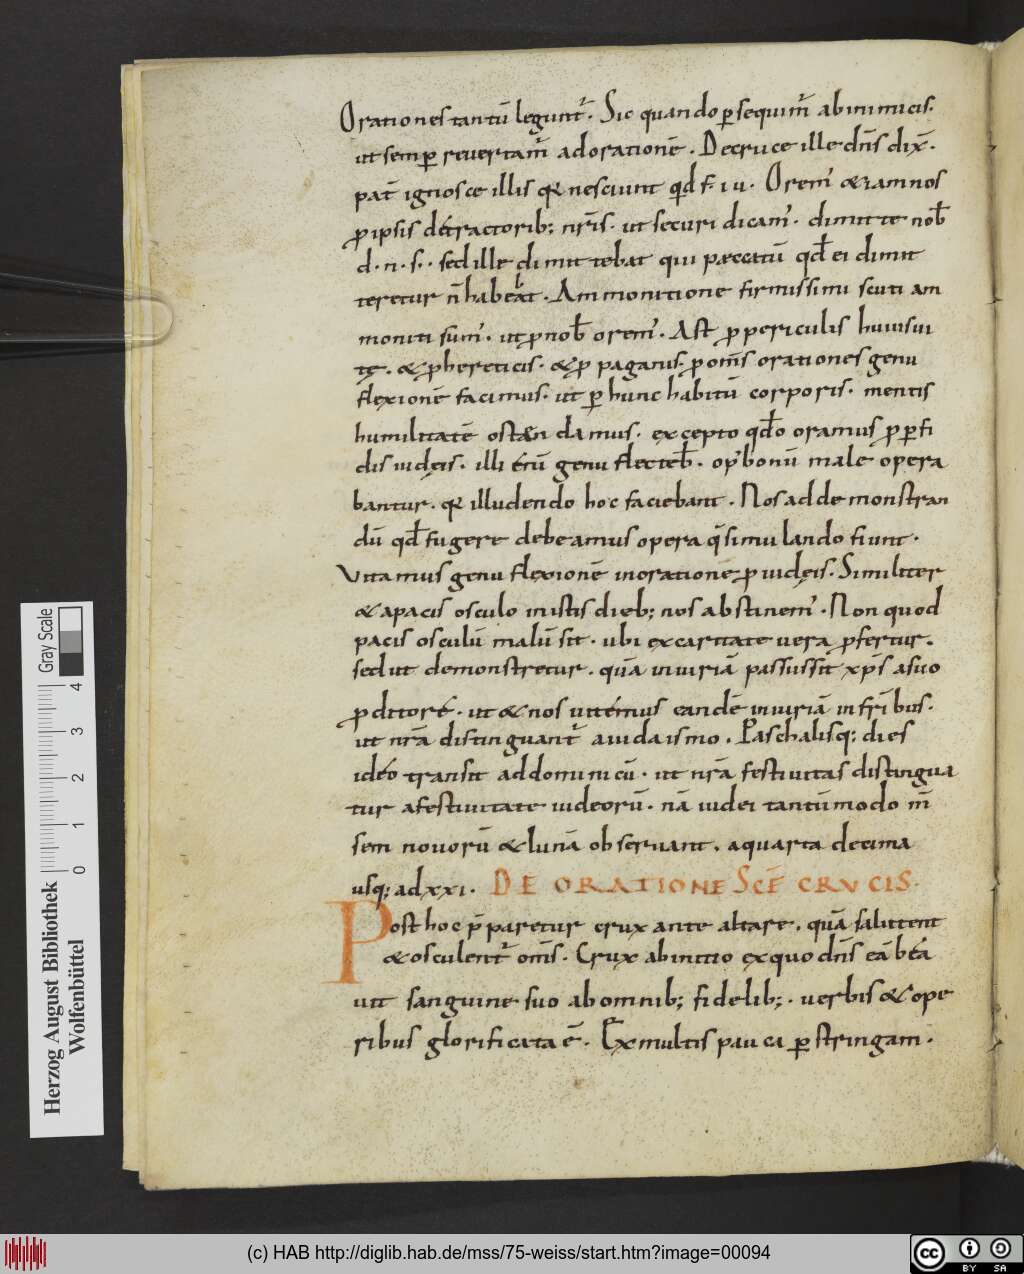 Orationes tantū leguntᷣ. Sic quando ꝑsequimᷣ ab inimicis.
ut semꝑ revertamᷣ ad orationē. De cruce ille dn̄s dix̄.
pat̄ ignosce illis qꝛ nesciunt qd̄ f. i u. Oremꝰ & iam nos
ꝓ ipsis detractorib; nr̄is. ut securi dicamꝰ. dimitte nob̄
d. n. s. sed ille dimittebat qui peccatū qd̄ ei dimit
teretur n̄ habebat. Ammonitione firmissimi scuti am
moniti sumꝰ. ut ꝓ nob̄ oremꝰ. Ast ꝓ periculis huius ui
tę. & ꝓ hereticis. & ꝓ paganis. ꝓ om̄s orationes genu
flexionē facimus. ut ꝑ hunc habitū corporis. mentis
humilitatē ostendamus. excepto qd̄o oramus ꝓ ꝑfi
dis iudęis. illi en̄ genu flecteb̄. opꝰ bonū male opera
bantur. qꝛ illudendo hoc faciebant. Nos ad demonstran
dū qd̄ fugere debeamus opera q̄ simulando fiunt.
Vitamus genu flexionē in oratione ꝓ iudęis. Similiter
& a pacis osculo in istis dieb; nos abstinemꝰ. Non quod
pacis osculū malū sit. ubi ex caritate vera ꝓfertur.
sed ut demonstretur. quā iniuriā passus sit xp̄s a suo
ꝓditore. ut & nos vitemus eandē iniuriā in fr̄ibus.
ut nr̄a distinguantᷣ a iudaismo. Paschalisq; dies
ideo transit ad dominicū. ut nr̄a festivitas distingua
tur a festivitate iudeorū. nā iudei tantūmodo m̄
sem novorū & lunā observant. a quarta decima
usq; ad xxi. DE ORATIONE SCĒ CRUCIS.
Post hoc p̄paretur crux ante altare. quā salutent
& osculentᷣ om̄s. Crux ab initio ex quo dn̄s eā bea
vit sanguine suo ab omnib; fidelib;. verbis & ope
ribus glorificata ē. Ex multis pauca ꝑstringam.
Gray Scale
4
3
2
1
0
Herzog August Bibliothek
Wolfenbüttel
(c) HAB http://diglib.hab.de/mss/75-weiss/start.htm?image=00094
cc BY SA